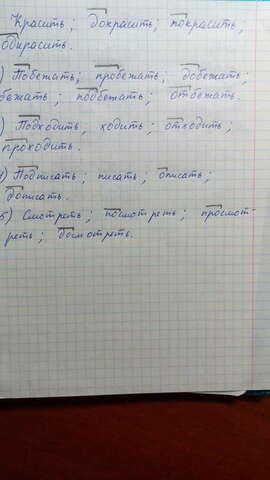 Красить; докрасить; покрасить;
) Побежать; пробежать, добежать;
бежать; подбежать; отбежать.
) Подходить, ходить; отходить;
проходить.
) Подписать; писать; описать;
дописать.
5) Смотреть; посмотреть; просмот-
реть; досмотреть.